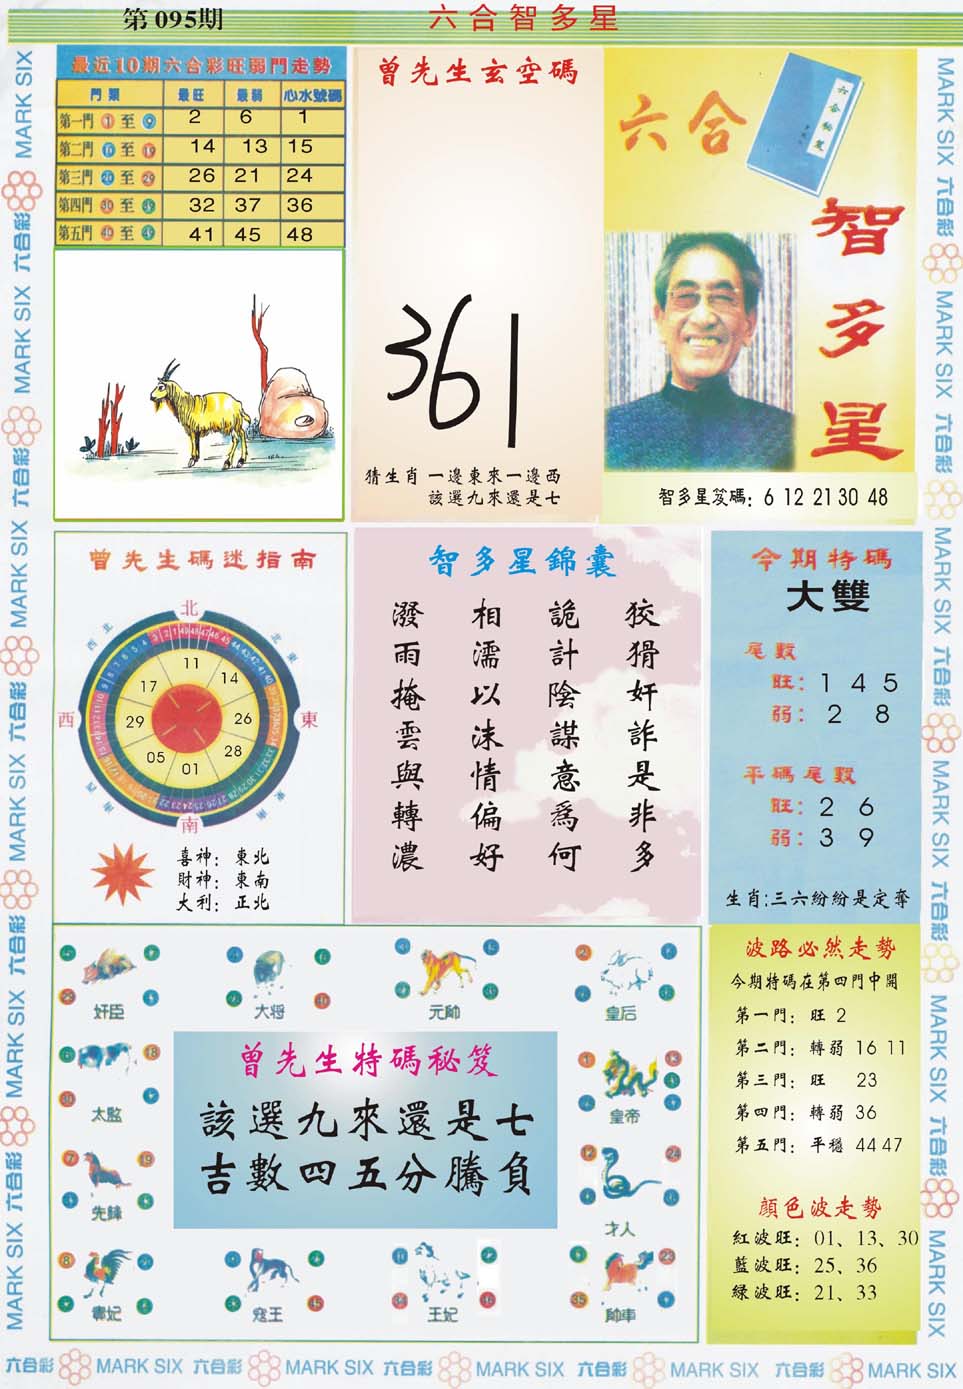 第 095期
六合智多星
最近10期六合彩旺弱門走勢
門類 最旺 最弱 心水號碼
第一門 1 至 9 2 6 1
第二門 10 至 19 14 13 15
第三門 20 至 29 26 21 24
第四門 30 至 39 32 37 36
第五門 40 至 49 41 45 48
曾先生玄空碼
361
猜生肖 一邊東來一邊西
該選九來還是七
六合
六合秘笈
智多星
智多星笈碼：6 12 21 30 48
曾先生碼迷指南
北
西北
北東
西
東
南西
東南
南
11
14
26
28
01
05
29
17
喜神：東北
財神：東南
大利：正北
智多星錦囊
狡猾奸詐是非多
詭計陰謀意為何
相濡以沫情偏好
潑雨掩雲與轉濃
今期特碼
大雙
尾數
旺：1 4 5
弱：2 8
平碼尾數
旺：2 6
弱：3 9
生肖:三六紛紛是定奪
奸臣
大将
元帥
皇后
太監
皇帝
先鋒
才人
寇王
王妃
帥車
曾先生特碼秘笈
該選九來還是七
吉數四五分騰負
波路必然走勢
今期特碼在第四門中開
第一門：旺 2
第二門：轉弱 16 11
第三門：旺 23
第四門：轉弱 36
第五門：平穩 44 47
顔色波走勢
紅波旺：01、13、30
藍波旺：25、36
緑波旺：21、33
MARK SIX 六合彩 MARK SIX 六合彩 MARK SIX 六合彩 MARK SIX 六合彩 MARK SIX 六合彩 MARK SIX 六合彩 MARK SIX
MARK SIX 六合彩 MARK SIX 六合彩 MARK SIX 六合彩 MARK SIX 六合彩 MARK SIX 六合彩 MARK SIX
六合彩 MARK SIX 六合彩 MARK SIX 六合彩 MARK SIX 六合彩 MARK SIX 六合彩 MARK SIX